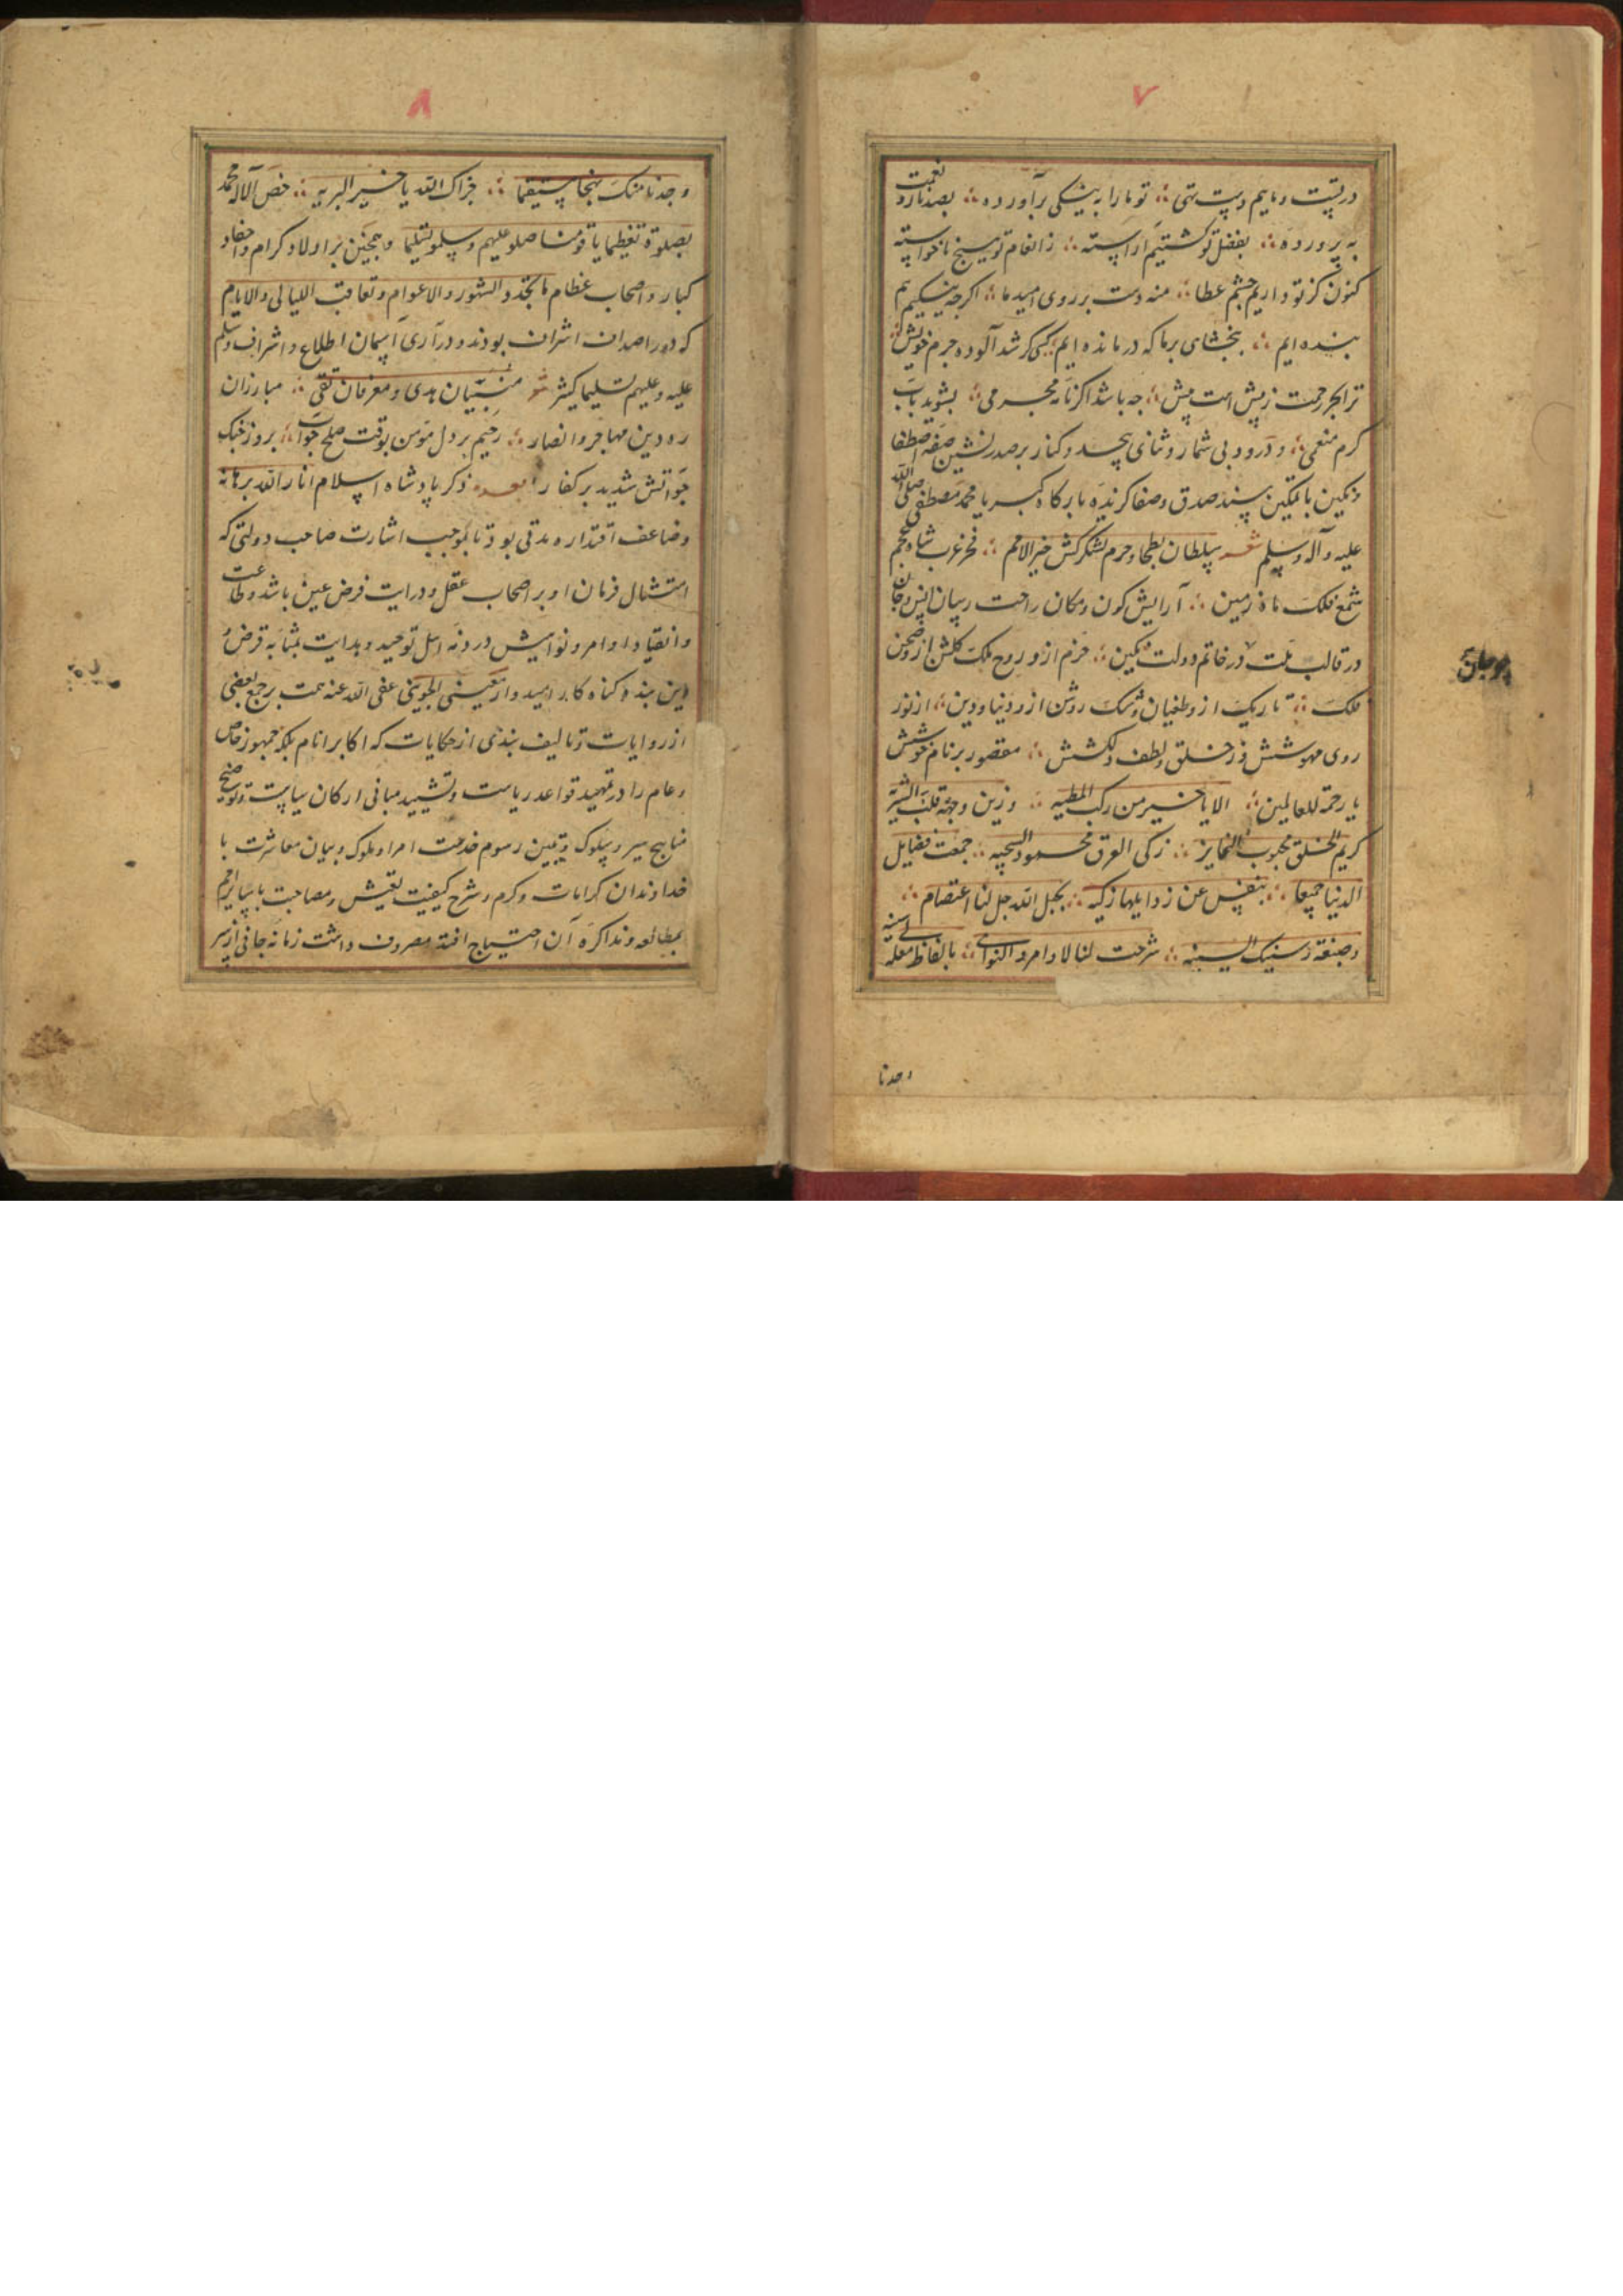 ۷
در پست و مایم و پست تهی ؞ تو ما را به نیکی برآورده ؞ بصد ناز و نعمت
به پرورده ؞ بفضل تو گشتیم آراسته ؞ ز انعام تو هیچ ناخواسته
کنون کز تو داریم چشم عطا ؞ منه دست بر روی امید ما ؞ اکرچه نیکیم
بنده ایم ؞ ببخشای بر ما که درمانده ایم ؞ کسی کر شد آلوده جرم خویش ؞
ترا بحر رحمت ز پیش است پیش ؞ چه باشد اکر نامه مجرمی ؞ بشوید بآب
کرم منعمی ؞ و درود بی شمار و ثنای بیحد و کنار بر صدرنشین صفه اصطفا
و مکین با تمکین مسند صدق و صفا کزیده بارکاه کبریا محمد مصطفی صلی الله
علیه و آله و سلم شعر سلطان بطحا و حرم لشکرکش خیر الامم ؞ فخر عرب شاه عجم
شمع فلک ماه زمین ؞ آرایش کون و مکان راحت رسان انس و جان
در قالب ملت در خاتم دولت نکین ؞ خرم ازو روح ملک کلشن ازو صحن
فلک ؞ تاریک ازو طغیان و شک روشن ازو دنیا و دین ؞ از نور
روی مهوشش وز خلق و لطف دلکشش ؞ مقصور بر نام خوشش
یا رحمة للعالمین ؞ الا یا خیر من رکب المطیه ؞ و زین وجهه قلب
کریم الخلق محبوب ؞ زکی العرق محمود السجیه ؞ جمعت فضایل
الدنیا جمیعا ؞ بنفس عن رذایلها زکیه ؞ بحبل الله جل لنا اعتصام ؞
و السنیه ؞ شرحت لنا الاوامر و النواهی ؞ بالفاظ
وجدنا
۸
وجدنا منک نهجا مستقیما ؞ جزاک الله یا خیر البریه ؞ خص الاله محمد
بصلوة تعظیما یا قومنا صلو علیهم و سلمو تسلیما و همچنین بر اولاد کرام و احفاد
کبار و اصحاب عظام ما تجدد الشهور و الاعوام و تعاقب اللیالی و الایام
که درر اصداف اشراف بودند و دراری آسمان اطلاع و اشراف وسلم
علیه و علیهم تسلیما کثیر شعر هدی و تقی ؞ مبارزان
ره دین مهاجر و انصار ؞ رحیم بر دل مؤمن بوقت صلح چو آب ؞ بروز جنک
چو آتش شدید بر کفار ذکر پادشاه اسلام انار الله برهانه
و ضاعف اقتداره مدتی بود تا بموجب اشارت صاحب دولتی که
امتثال فرمان او بر اصحاب عقل و درایت فرض عین باشد و طاعت
و انقیاد اوامر و نوامیش در ذمه اهل توحید و هدایت بمثابه قرض
این بنده کناه کار امیدوار معینی الجوینی عفی الله عنه همت بر جمع بعضی
از روایات و تالیف نبذی از حکایات که اکابر انام بلکه جمهور خاص
و عام را در تمهید قواعد ریاست و تشیید مبانی ارکان سیاست و توضیح
مناهج سیر و سلوک و تبیین رسوم خدمت امرا و ملوک و بیان معاشرت با
خداوندان کرامات و کرم و شرح کیفیت تعیش و مصاحبت با سایر
بمطالعه و مذاکره آن احتیاج افتد مصروف داشت زمانه جانی از سر